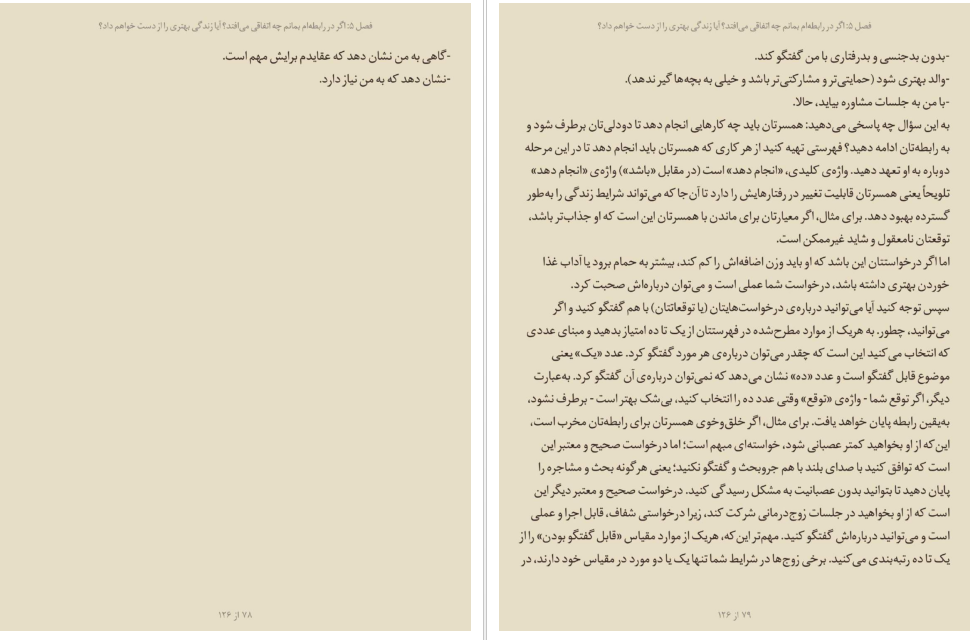 فصل ۵: اگر در رابطه‌ام بمانم چه اتفاقی می‌افتد؟ آیا زندگی بهتری را از دست خواهم داد؟
-گاهی به من نشان دهد که عقایدم برایش مهم است.
-نشان دهد که به من نیاز دارد.
۷۸ از ۱۲۶
فصل ۵: اگر در رابطه‌ام بمانم چه اتفاقی می‌افتد؟ آیا زندگی بهتری را از دست خواهم داد؟
-بدون بدجنسی و بدرفتاری با من گفتگو کند.
-والد بهتری شود (حمایتی‌تر و مشارکتی‌تر باشد و خیلی به بچه‌ها گیر ندهد).
-با من به جلسات مشاوره بیاید، حالا.
به این سؤال چه پاسخی می‌دهید: همسرتان باید چه کارهایی انجام دهد تا دودلی‌تان برطرف شود و
به رابطه‌تان ادامه دهید؟ فهرستی تهیه کنید از هر کاری که همسرتان باید انجام دهد تا در این مرحله
دوباره به او تعهد دهید. واژه‌ی کلیدی، «انجام دهد» است (در مقابل «باشد») واژه‌ی «انجام دهد»
تلویحاً یعنی همسرتان قابلیت تغییر در رفتارهایش را دارد تا آن‌جا که می‌تواند شرایط زندگی را به‌طور
گسترده بهبود دهد. برای مثال، اگر معیارتان برای ماندن با همسرتان این است که او جذاب‌تر باشد،
توقعتان نامعقول و شاید غیرممکن است.
اما اگر درخواستتان این باشد که او باید وزن اضافه‌اش را کم کند، بیشتر به حمام برود یا آداب غذا
خوردن بهتری داشته باشد، درخواست شما عملی است و می‌توان درباره‌اش صحبت کرد.
سپس توجه کنید آیا می‌توانید درباره‌ی درخواست‌هایتان (یا توقعاتتان) با هم گفتگو کنید و اگر
می‌توانید، چطور. به هریک از موارد مطرح‌شده در فهرستتان از یک تا ده امتیاز بدهید و مبنای عددی
که انتخاب می‌کنید این است که چقدر می‌توان درباره‌ی هر مورد گفتگو کرد. عدد «یک» یعنی
موضوع قابل گفتگو است و عدد «ده» نشان می‌دهد که نمی‌توان درباره‌ی آن گفتگو کرد. به‌عبارت
دیگر، اگر توقع شما - واژه‌ی «توقع» وقتی عدد ده را انتخاب کنید، بی‌شک بهتر است - برطرف نشود،
به‌یقین رابطه پایان خواهد یافت. برای مثال، اگر خلق‌وخوی همسرتان برای رابطه‌تان مخرب است،
این‌که از او بخواهید کمتر عصبانی شود، خواسته‌ای مبهم است؛ اما درخواست صحیح و معتبر این
است که توافق کنید با صدای بلند با هم جروبحث و گفتگو نکنید؛ یعنی هرگونه بحث و مشاجره را
پایان دهید تا بتوانید بدون عصبانیت به مشکل رسیدگی کنید. درخواست صحیح و معتبر دیگر این
است که از او بخواهید در جلسات زوج‌درمانی شرکت کند، زیرا درخواستی شفاف، قابل اجرا و عملی
است و می‌توانید درباره‌اش گفتگو کنید. مهم‌تر این‌که، هریک از موارد مقیاس «قابل گفتگو بودن» را از
یک تا ده رتبه‌بندی می‌کنید. برخی زوج‌ها در شرایط شما تنها یک یا دو مورد در مقیاس خود دارند، در
۷۹ از ۱۲۶